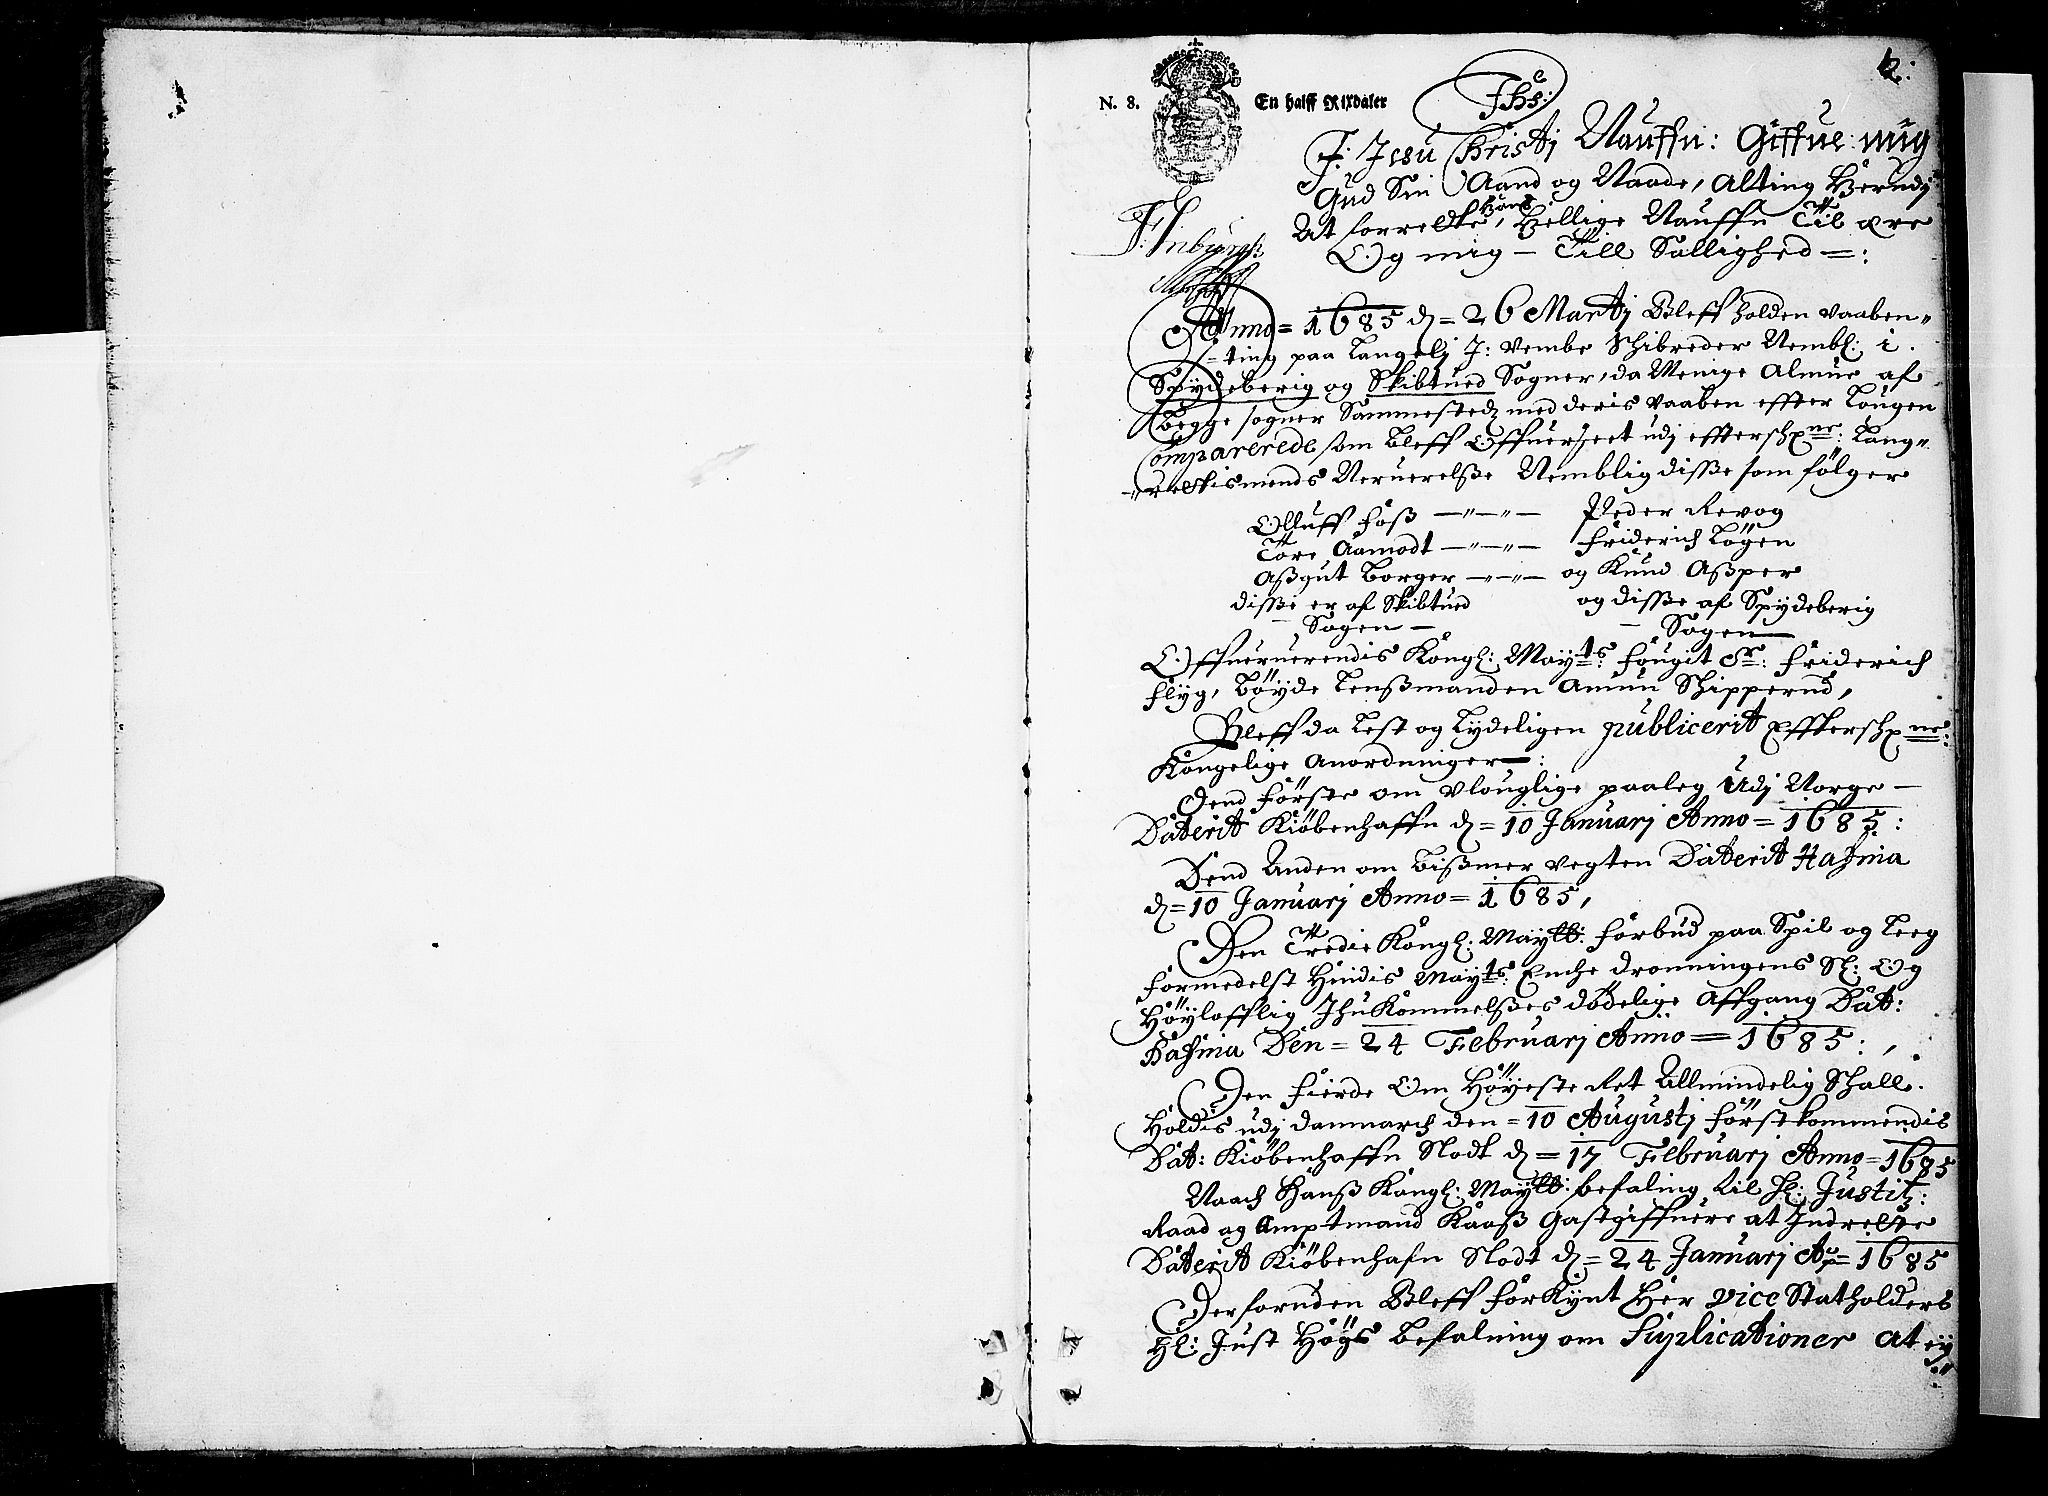 2:
N. 8. En halff Rixdaler
Jhs:
J: Jesu Christi Nauffn: Giffue mig
Gud Sin Aand og Naade, Alting herudj
At forrette, hans hellige Nauffn Til ære
Og mig – Till Salighed =:
Anno = 1685 d = 26 Martij Bleff holden vaaben„
„ting paa Langelj J: Vembe Schibreder Nembl: i.
Spydeberig og Skibtued Sogner, da Menige Almue af
begge sogner Sammestedz med deris vaaben effter Lougen
Comparerede som bleff Offuerseet udj effterschne: Laug„
„rettismends Neruerelße Nemblig diße som følger
Olluff foß –„–„– Peder Revog
Tore Aamodt –„–„– friderich Løgen
Aßgut Borger –„–„– og Knud Aßper
diße er af Skibtued og diße af Spydeberig
– Sogen – – Sogen –
Offueruerendis Kongl: Mayts: fougit Sr: friderich
flyg, Bøyde Lenßmanden Amun Schipperud,
Bleff da Lest og Lydeligen publicerit Effterschne:
Kongelige Anordninger –:
Dend første om Vlouglige paaleg Udj Norge –
Daterit Kiøbenhaffn d = 10 Januarj Anno = 1685:
Dend Anden om bißmer vegten Daterit Hafnia
d = 10 Januarj Anno = 1685,
Den Tredie Kongl: Maytt: forbud paa Spil og Leeg
formedelst Hindis Mayts: Enche dronningens Sl: Og
Høylofflig Jhukommelßes dødelige Affgang Dat:
Hafnia Den = 24 Februarj Anno = 1685:,.
Den fierde Om Høyeste Ret Allmindelig Schall.
Holdis udj danmarch den = 10 Augustj førstkommendis
Dat: Kiøbenhaffn Slodt d = 17 Februarj Anno = 1685
Naach Hanß Kongl: Maytt: befaling til Hl: Justitz:
Raad og Amptmand Kaaß Gastgiffuere at Indrette
Daterit Kiøbenhafn Slodt d = 24 Januarj Ao = 1685
Derforuden Bleff forkynt Her vice Statholders
Hl: Just Høgs befalning om Suplicationer at ey